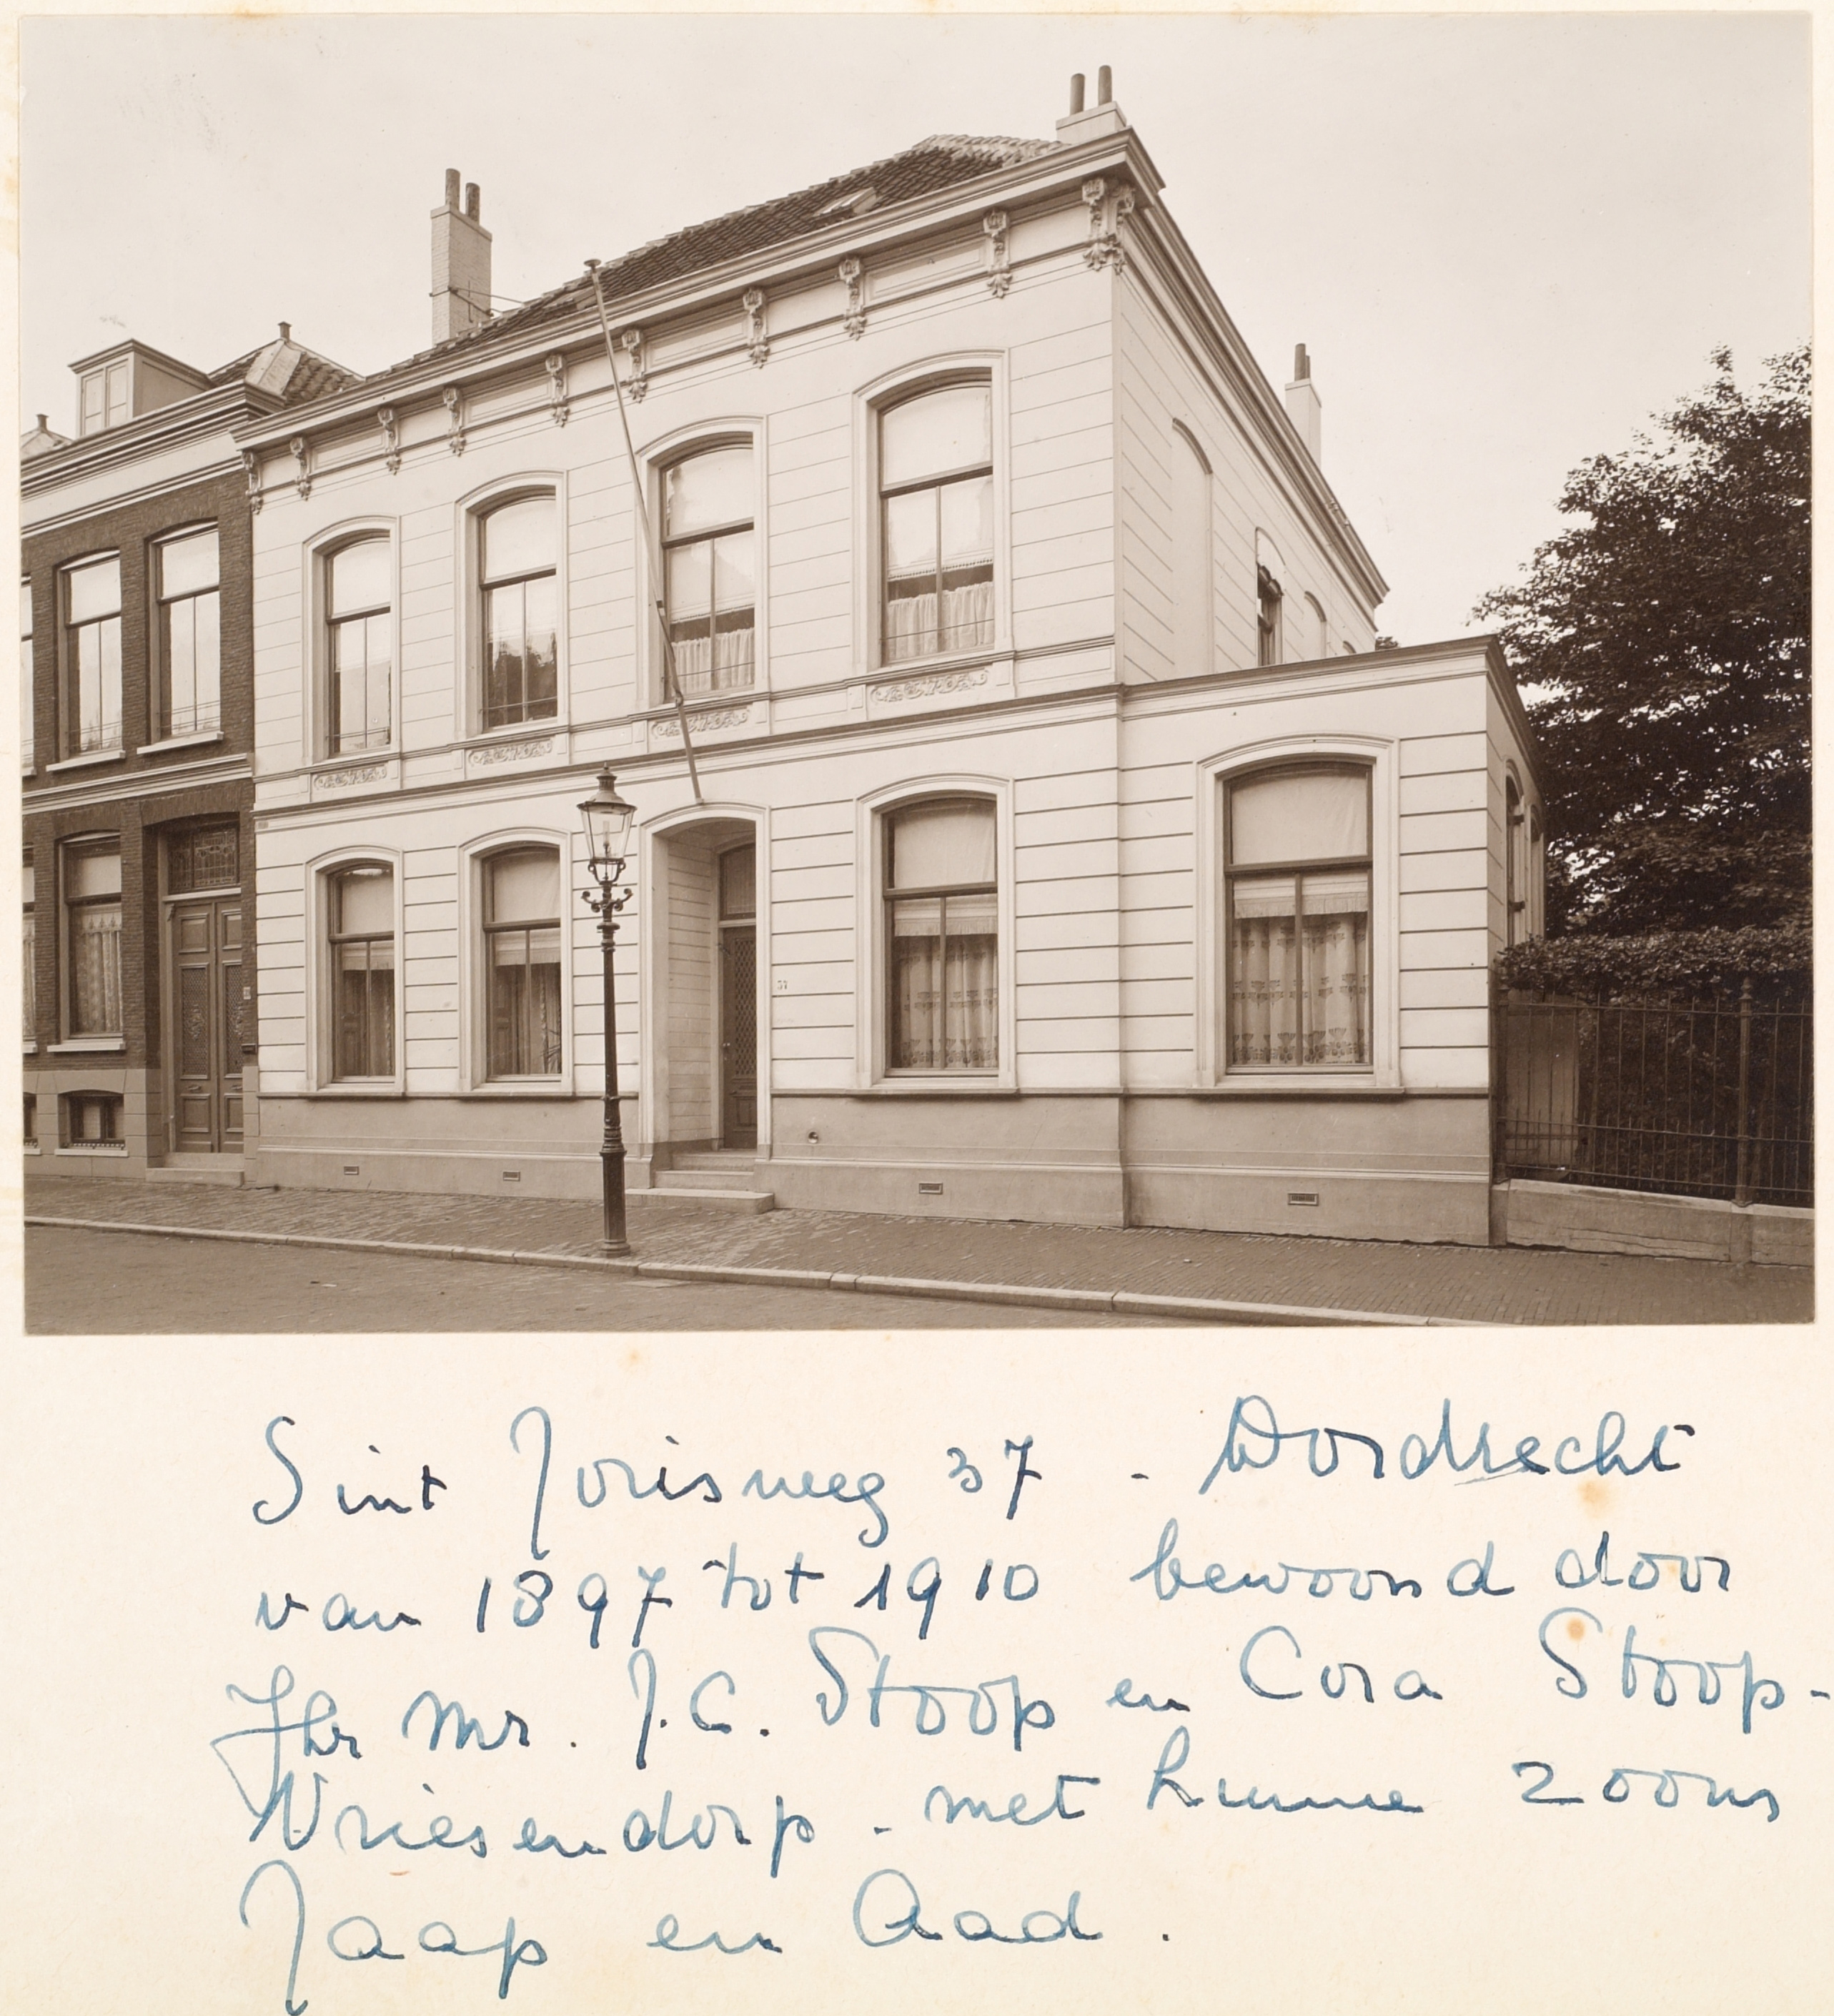 37
Sint Jorisweg 37 - Dordrecht
van 1897 tot 1910 bewoond door
Jhr Mr. J.C. Stoop en Cora Stoop-
Vriesendorp - met hunne zoons
Jaap en Aad.